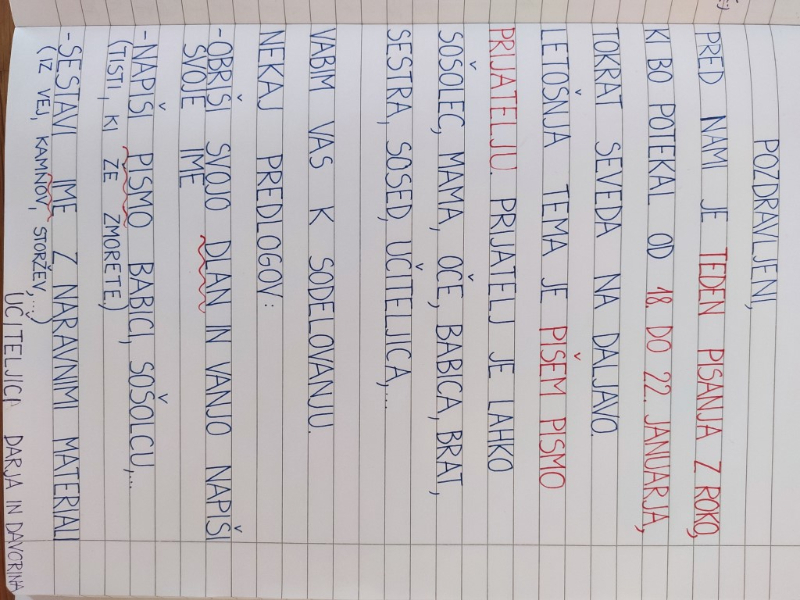 POZDRAVLJENI,
PRED NAMI JE TEDEN PISANJA Z ROKO,
KI BO POTEKAL OD 18. DO 22. JANUARJA,
TOKRAT SEVEDA NA DALJAVO.
LETOŠNJA TEMA JE PIŠEM PISMO
PRIJATELJU PRIJATELJ JE LAHKO
SOŠOLEC, MAMA, OČE, BABICA, BRAT,
SESTRA, SOSED, UČITELJICA,...
VABIM VAS K SODELOVANJU.
NEKAJ PREDLOGOV:
- OBRIŠI SVOJO DLAN IN VANJO NAPIŠI
SVOJE IME
- NAPIŠI PISMO BABICI, SOŠOLCU,...
(TISTI, KI ŽE ZMORETE)
- SESTAVI IME Z NARAVNIMI MATERIALI
(IZ VEJ, KAMNOV, STORŽEV,...)
UČITELJICI DARJA IN DAVORINA